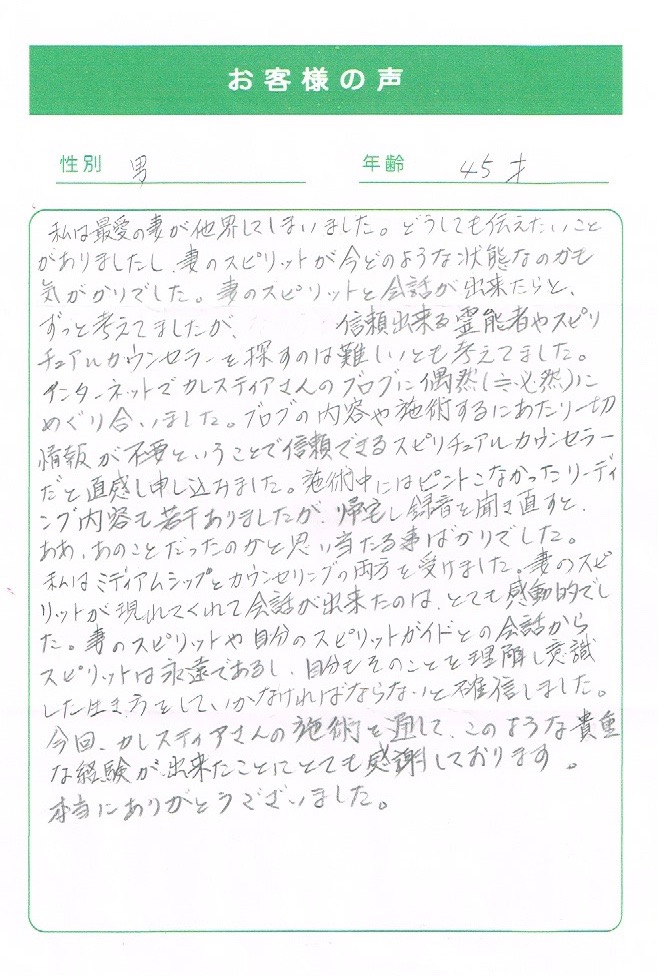 お客様の声
性別 男 年齢 45才
私は最愛の妻が他界してしまいました。どうしても伝えたいこと
がありましたし、妻のスピリットが今どのような状態なのかも
気がかりでした。妻のスピリットと会話が出来たらと、
ずっと考えてましたが、 信頼出来る霊能者やスピリ
チュアルカウンセラーを探すのは難しいとも考えてました。
インターネットでカレスティアさんのブログに偶然(≒必然)に
めぐり合いました。ブログの内容や施術するにあたり一切
情報が不要ということで信頼できるスピリチュアルカウンセラー
だと直感し申し込みました。施術中にはピントこなかったリーディ
ング内容も若干ありましたが、帰宅し録音を聞き直すと、
ああ、あのことだったのかと思い当たる事ばかりでした。
私はミディアムシップとカウンセリングの両方を受けました。妻のスピ
リットが現れてくれて会話が出来たのは、とても感動的でし
た。妻のスピリットや自分のスピリットガイドとの会話から
スピリットは永遠であるし、自分もそのことを理解し意識
した生き方をしていかなければならないと確信しました。
今回、カレスティアさんの施術を通して、このような貴重
な経験が出来たことにとても感謝しております。
本当にありがとうございました。